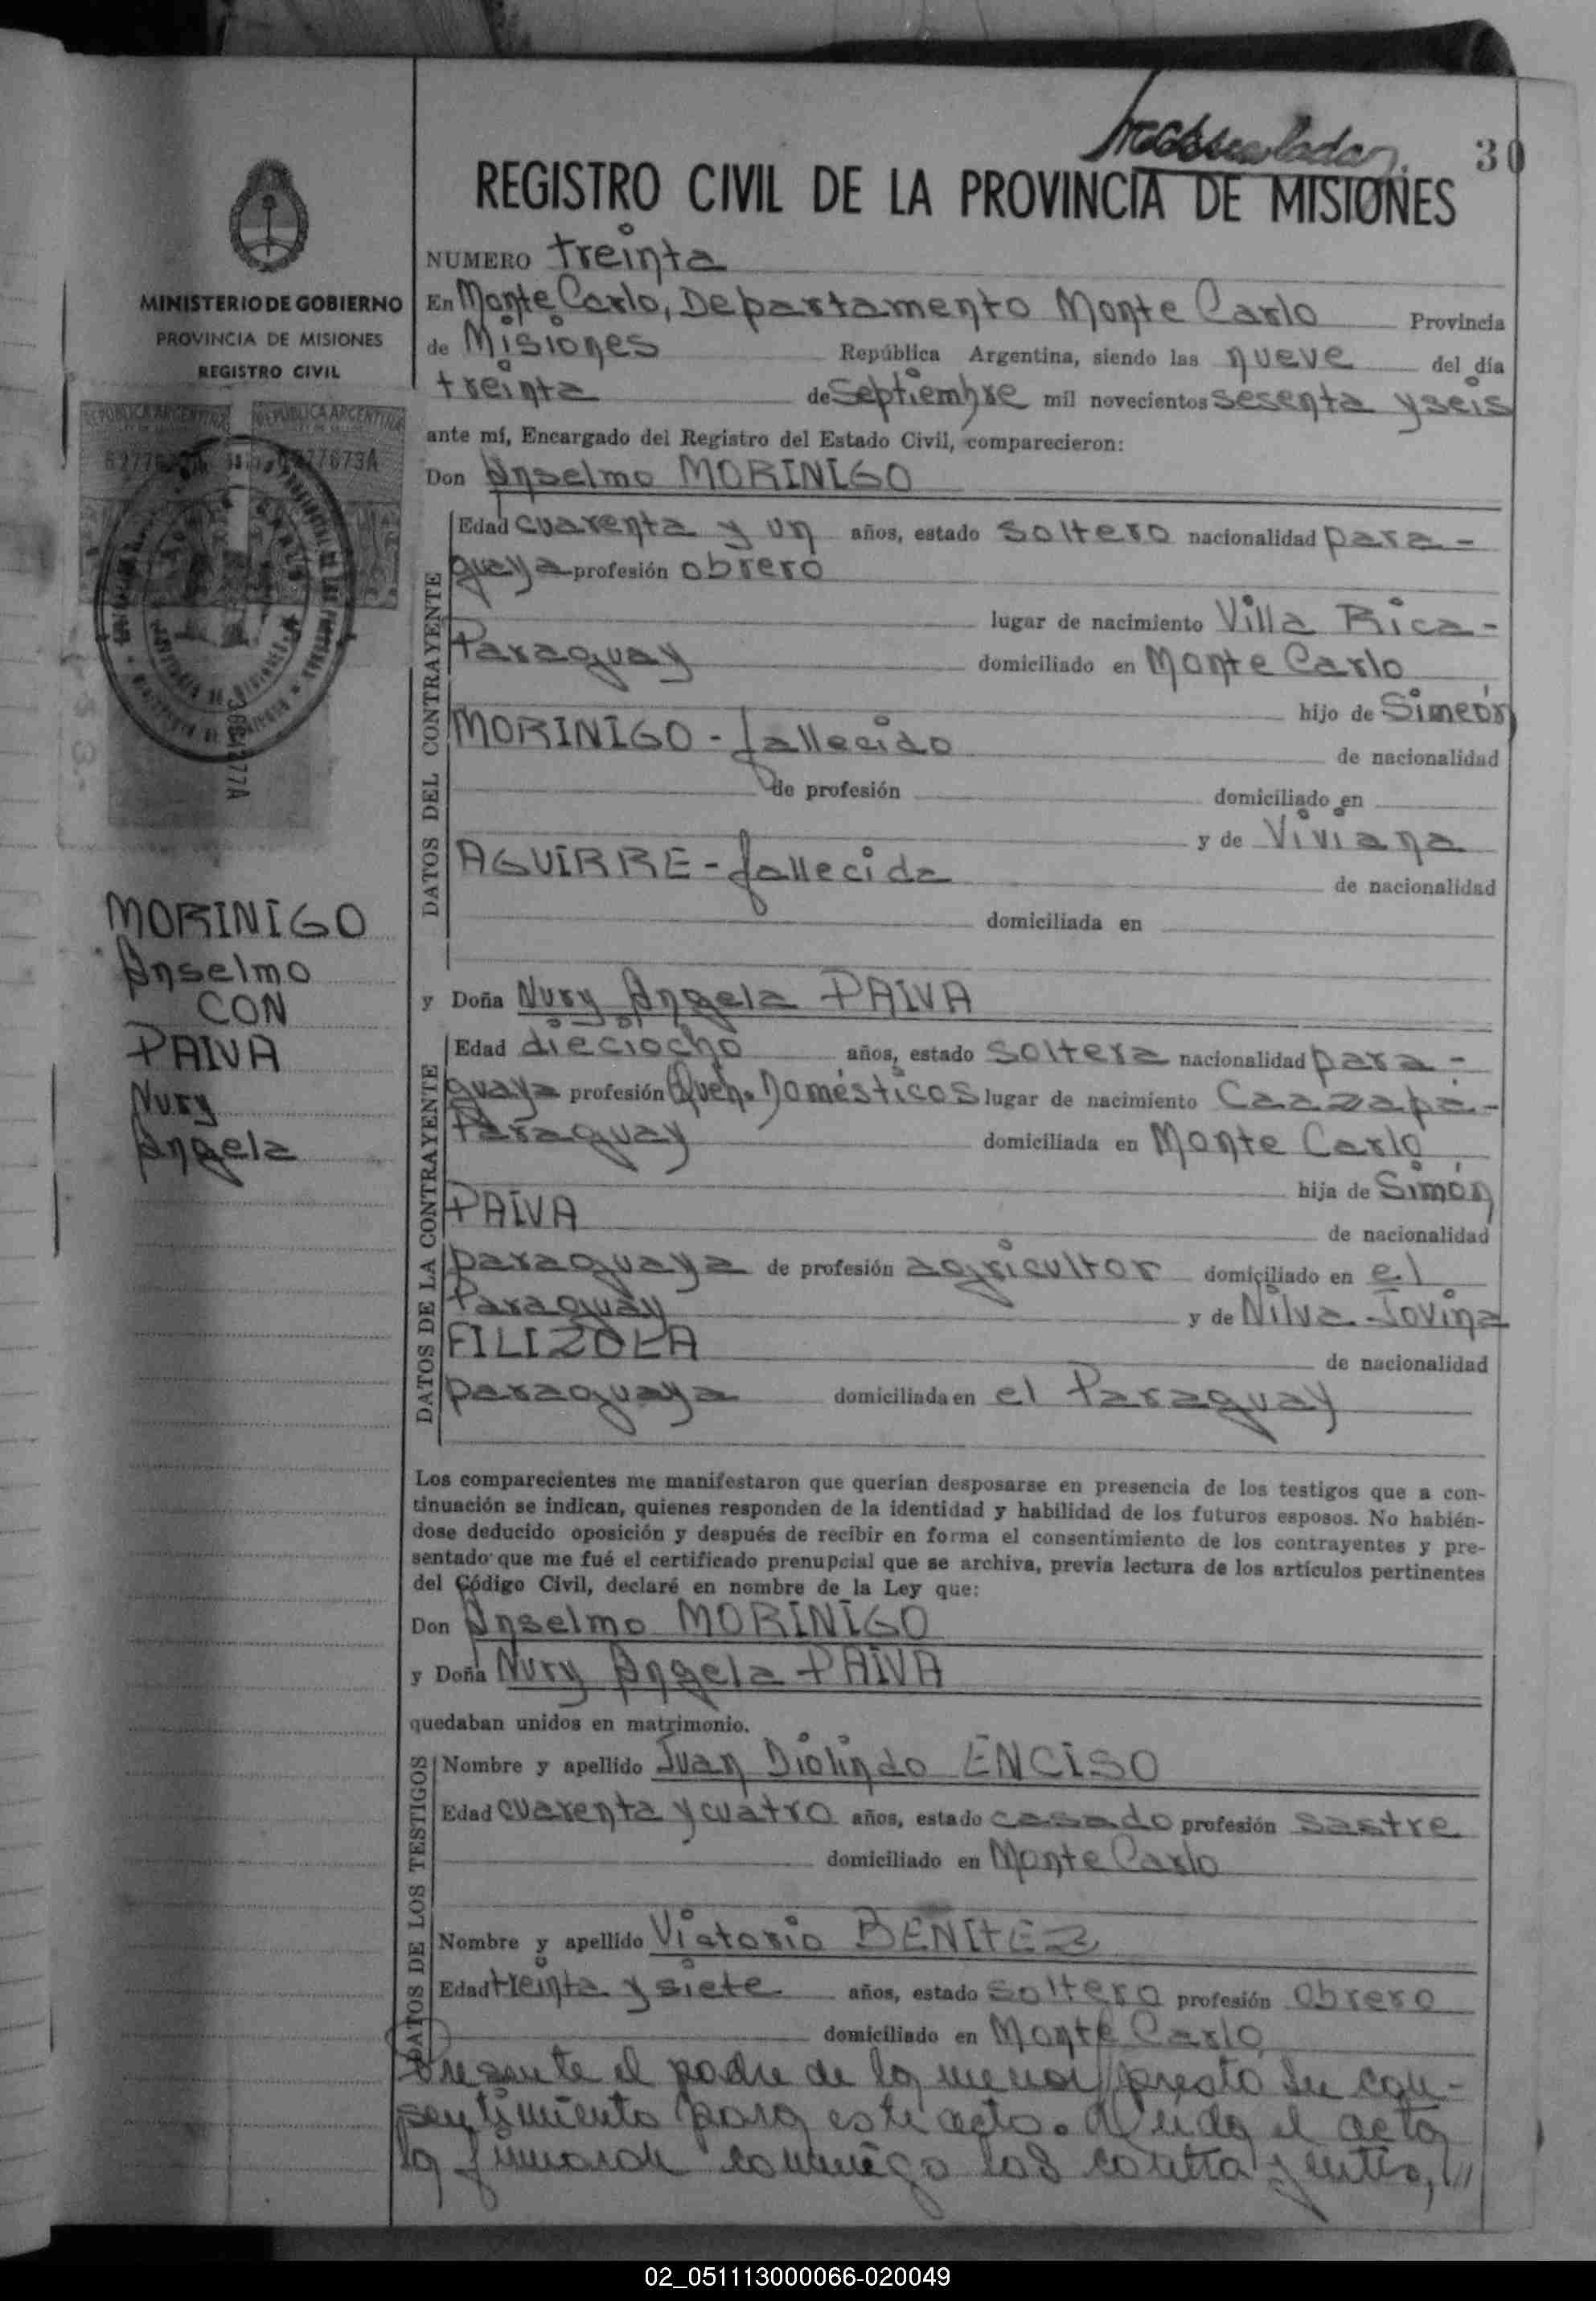 30
REGISTRO CIVIL DE LA PROVINCIA DE MISIONES
NUMERO treinta
MINISTERIO DE GOBIERNO
PROVINCIA DE MISIONES
REGISTRO CIVIL
En Monte Carlo, Departamento Monte Carlo Provincia
de Misiones República Argentina, siendo las nueve del día
treinta de Septiembre mil novecientos sesenta y seis
ante mí, Encargado del Registro del Estado Civil, comparecieron:
Don Anselmo MORINIGO
DATOS DEL CONTRAYENTE
Edad cuarenta y un años, estado soltero nacionalidad para-
guaya profesión obrero
lugar de nacimiento Villa Rica-
Paraguay domiciliado en Monte Carlo
hijo de Simeón
MORINIGO - fallecido de nacionalidad
de profesión domiciliado en
y de Viviana
AGUIRRE - fallecida de nacionalidad
domiciliada en
MORINIGO
Anselmo
CON
PAIVA
Nury
Angela
y Doña Nury Angela PAIVA
DATOS DE LA CONTRAYENTE
Edad dieciocho años, estado soltera nacionalidad para-
guaya profesión Queh. Domésticos lugar de nacimiento Caazapá-
Paraguay domiciliada en Monte Carlo
hija de Simón
PAIVA de nacionalidad
paraguaya de profesión agricultor domiciliado en el
Paraguay y de Nilva Jovina
FILIZOLA de nacionalidad
paraguaya domiciliada en el Paraguay
Los comparecientes me manifestaron que querían desposarse en presencia de los testigos que a con-
tinuación se indican, quienes responden de la identidad y habilidad de los futuros esposos. No habién-
dose deducido oposición y después de recibir en forma el consentimiento de los contrayentes y pre-
sentado que me fué el certificado prenupcial que se archiva, previa lectura de los artículos pertinentes
del Código Civil, declaré en nombre de la Ley que:
Don Anselmo MORINIGO
y Doña Nury Angela PAIVA
quedaban unidos en matrimonio.
DATOS DE LOS TESTIGOS
Nombre y apellido Juan Diolindo ENCISO
Edad cuarenta y cuatro años, estado casado profesión sastre
domiciliado en Monte Carlo
Nombre y apellido Victorio BENITEZ
Edad treinta y siete años, estado soltero profesión obrero
domiciliado en Monte Carlo
Presente el padre de la menor prestó su con-
sentimiento para este acto. Leida el acta
la firmaron conmigo los contrayentes,
02_051113000066-020049